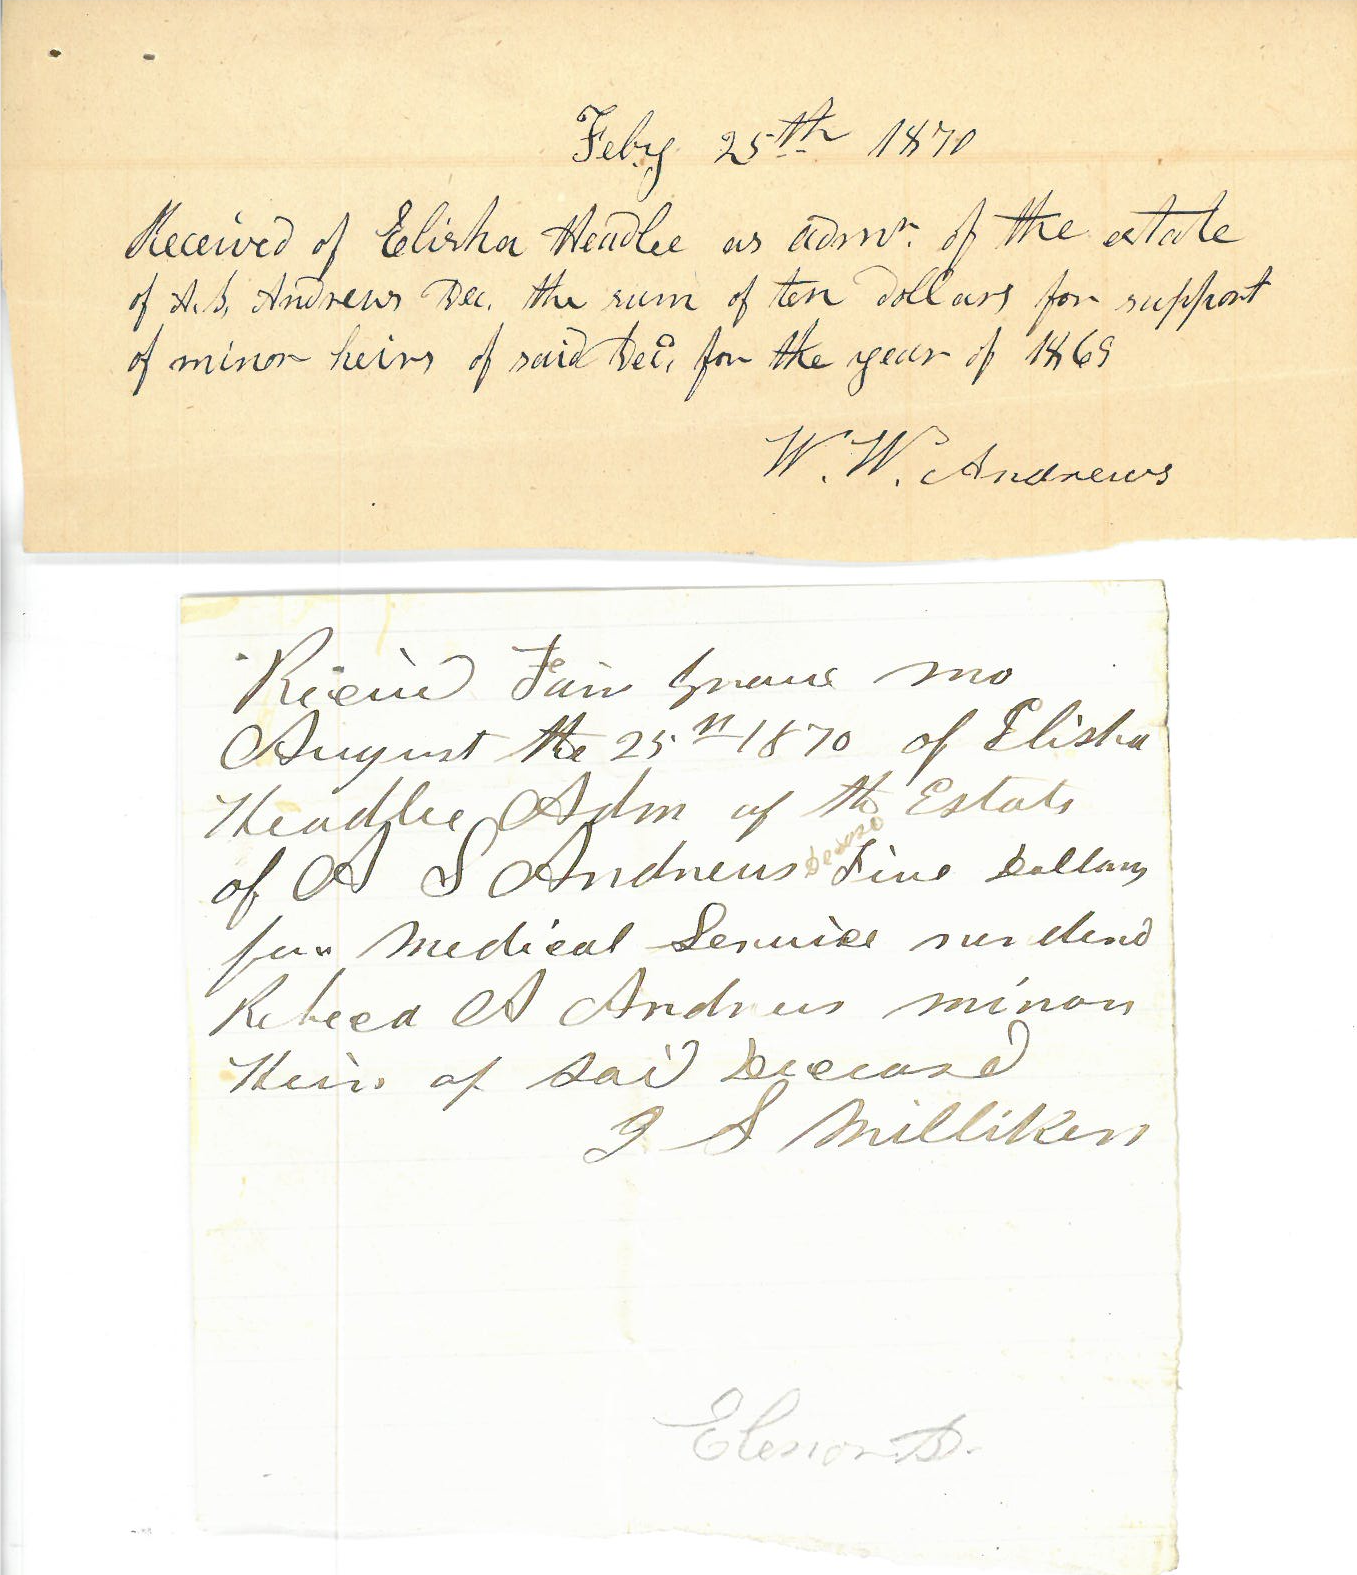 Feby 25th 1870
Received of Elisha Headlee as admr. of the estate
of A. S. Andrews Dec. the sum of ten dollars for support
of minor heirs of said Dec. for the year of 1869
W. W. Andrews
Recein Fair Grove Mo
August the 25th 1870 of Elisha
Headlee Adm of the Estate
of A S Andrews Deceased Five Dollars
for Medical Service renderd
Rebeca A Andrews minor
Heirs of Said Deceased
J S Milliken